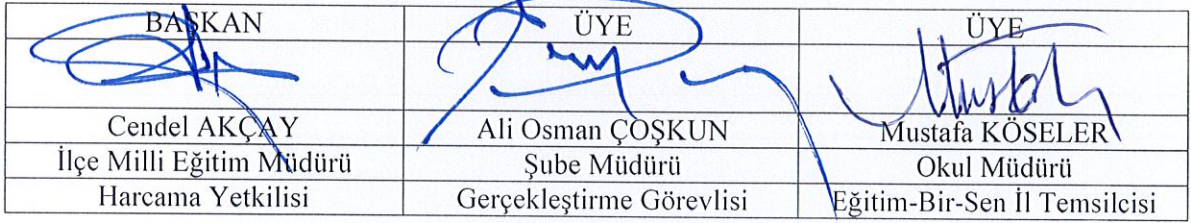 BAŞKAN ÜYE ÜYE
Cendel AKÇAY Ali Osman ÇOŞKUN Mustafa KÖSELER
İlçe Milli Eğitim Müdürü Şube Müdürü Okul Müdürü
Harcama Yetkilisi Gerçekleştirme Görevlisi Eğitim-Bir-Sen İl Temsilcisi